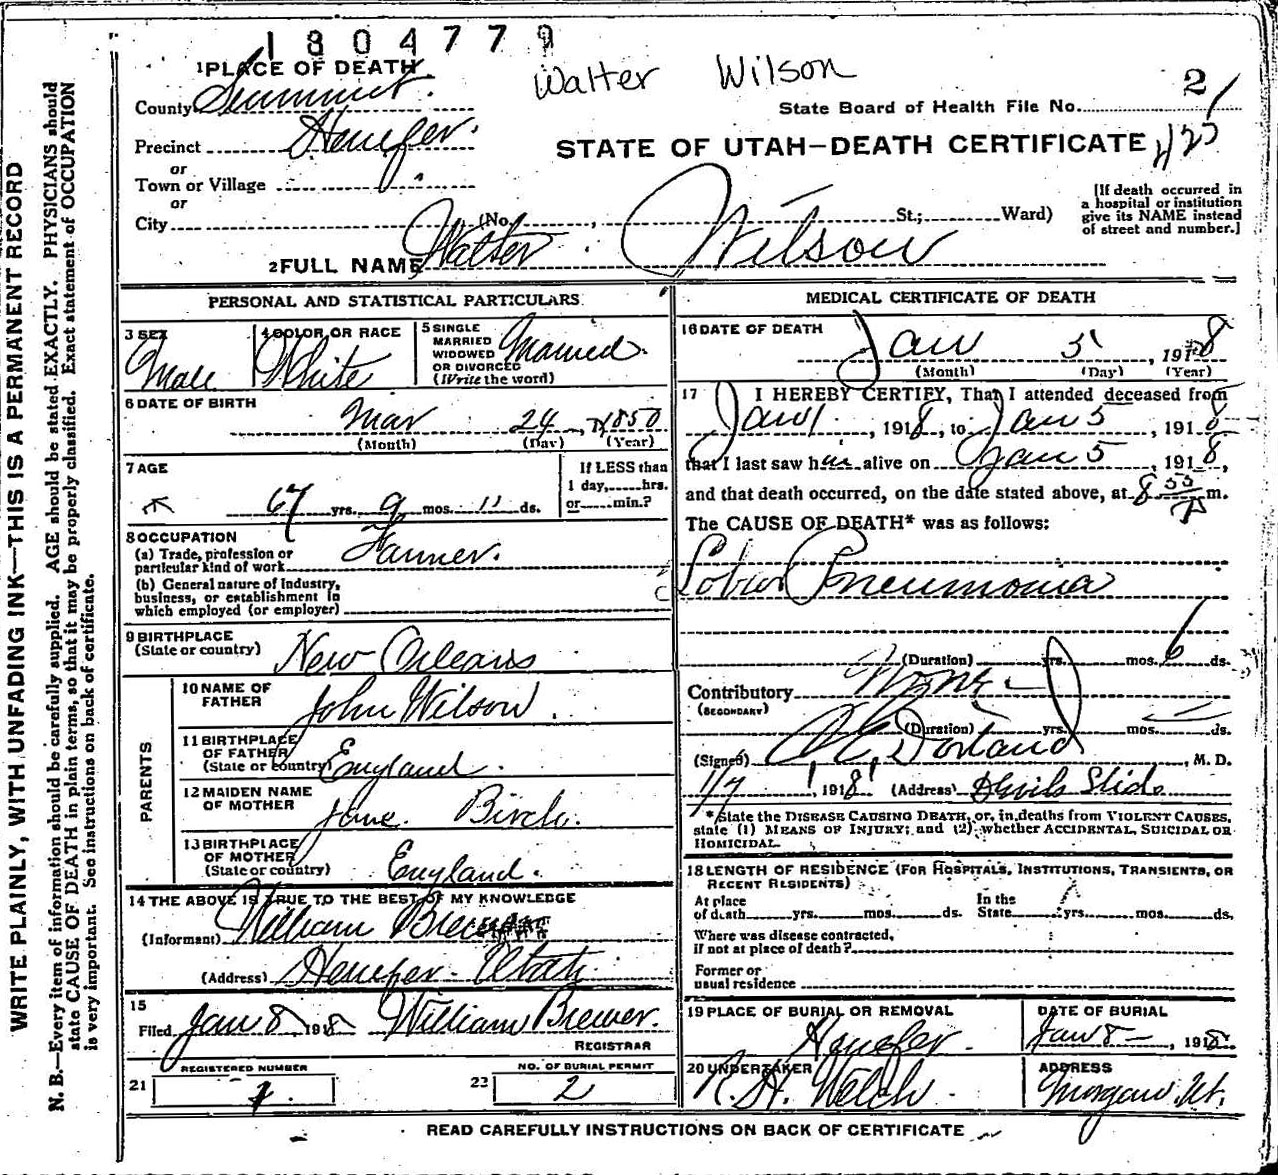 1804779
Walter Wilson
1 PLACE OF DEATH
County Summit.
State Board of Health File No. 2
Precinct Henefer.
STATE OF UTAH—DEATH CERTIFICATE
or
Town or Village
or
City (No. , St.; Ward)
[If death occurred in
a hospital or institution
give its NAME instead
of street and number.]
2 FULL NAME Walter Wilson
PERSONAL AND STATISTICAL PARTICULARS
3 SEX
Male
4 COLOR OR RACE
White
5 SINGLE
MARRIED
WIDOWED
OR DIVORCED
(Write the word)
Married.
6 DATE OF BIRTH
Mar 24, 1850
(Month) (Day) (Year)
7 AGE
67 yrs. 9 mos. 11 ds.
If LESS than
1 day, hrs.
or min.?
8 OCCUPATION
(a) Trade, profession or
particular kind of work Farmer.
(b) General nature of Industry,
business, or establishment in
which employed (or employer)
9 BIRTHPLACE
(State or country) New Orleans
PARENTS
10 NAME OF
FATHER John Wilson.
11 BIRTHPLACE
OF FATHER
(State or country) England.
12 MAIDEN NAME
OF MOTHER Jane Birch.
13 BIRTHPLACE
OF MOTHER
(State or country) England.
14 THE ABOVE IS TRUE TO THE BEST OF MY KNOWLEDGE
(Informant) William Brewer
(Address) Henefer Utah.
15
Filed Jan 8, 1918 William Brewer.
REGISTRAR
21 REGISTERED NUMBER
1
22 NO. OF BURIAL PERMIT
2
MEDICAL CERTIFICATE OF DEATH
16 DATE OF DEATH
Jan 5, 1918
(Month) (Day) (Year)
17 I HEREBY CERTIFY, That I attended deceased from
Jan 1, 1918, to Jan 5, 1918
that I last saw him alive on Jan 5, 1918,
and that death occurred, on the date stated above, at 8 55 P m.
The CAUSE OF DEATH* was as follows:
Lobar Pneumonia
(Duration) yrs. mos. 6 ds.
Contributory None
(SECONDARY)
(Duration) yrs. mos. ds.
(Signed) Dorland, M. D.
1/7, 1918, (Address) Devils Slide
*State the DISEASE CAUSING DEATH, or, in deaths from VIOLENT CAUSES,
state (1) MEANS OF INJURY; and (2) whether ACCIDENTAL, SUICIDAL OR
HOMICIDAL.
18 LENGTH OF RESIDENCE (FOR HOSPITALS, INSTITUTIONS, TRANSIENTS, OR
RECENT RESIDENTS)
At place In the
of death yrs. mos. ds. State yrs. mos. ds.
Where was disease contracted,
if not at place of death?
Former or
usual residence
19 PLACE OF BURIAL OR REMOVAL
Henefer.
DATE OF BURIAL
Jan 8, 1918
20 UNDERTAKER
R. H. Welch.
ADDRESS
Morgan. Ut.
READ CAREFULLY INSTRUCTIONS ON BACK OF CERTIFICATE
WRITE PLAINLY, WITH UNFADING INK—THIS IS A PERMANENT RECORD
N. B.—Every item of information should be carefully supplied. AGE should be stated EXACTLY. PHYSICIANS should
state CAUSE OF DEATH in plain terms, so that it may be properly classified. Exact statement of OCCUPATION
is very important. See instructions on back of certificate.